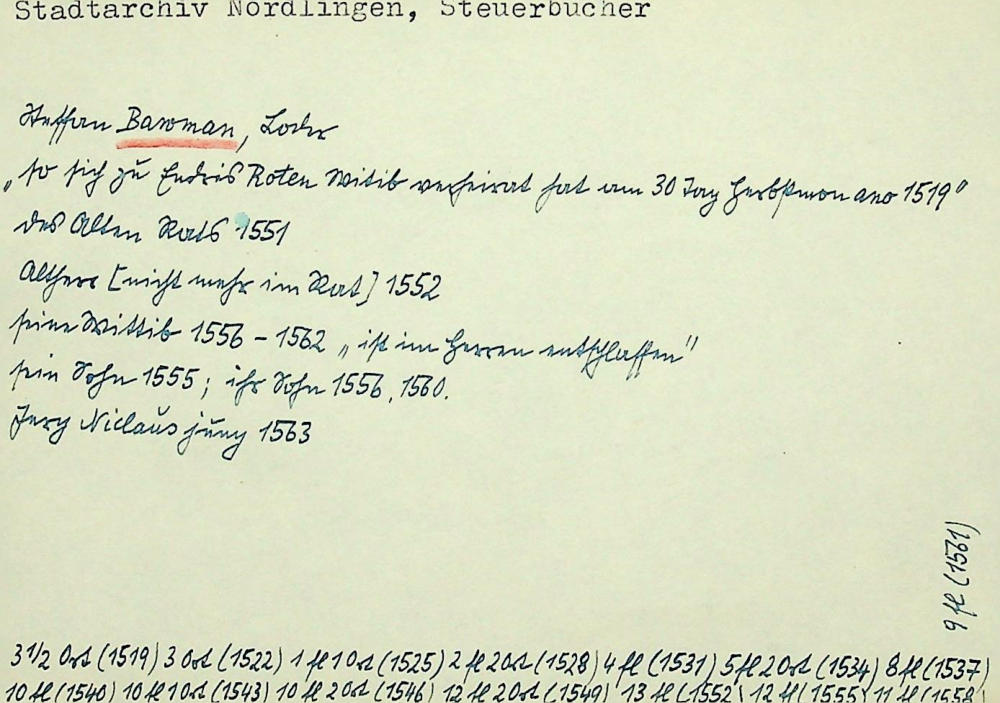 Stadtarchiv Nördlingen, Steuerbücher
Steffan Bawman, Loder
„so sich zu Endris Roten Witib verheirat hat am 30 Tag Herbstmon ano 1519"
des Alten Rats 1551
Altherr [nicht mehr im Rat] 1552
seine Wittib 1556 – 1562 „ist im Herren entschlaffen"
sein Sohn 1555; ihr Sohn 1556, 1560.
Jerg Niclaus jung 1563
9 fl (1561)
3 1/2 Ort (1519) 3 Ort (1522) 1 fl 1 Ort (1525) 2 fl 2 Ort (1528) 4 fl (1531) 5 fl 2 Ort (1534) 8 fl (1537)
10 fl (1540) 10 fl 1 Ort (1543) 10 fl 2 Ort (1546) 12 fl 2 Ort (1549) 13 fl (1552) 12 fl (1555) 11 fl (1558)